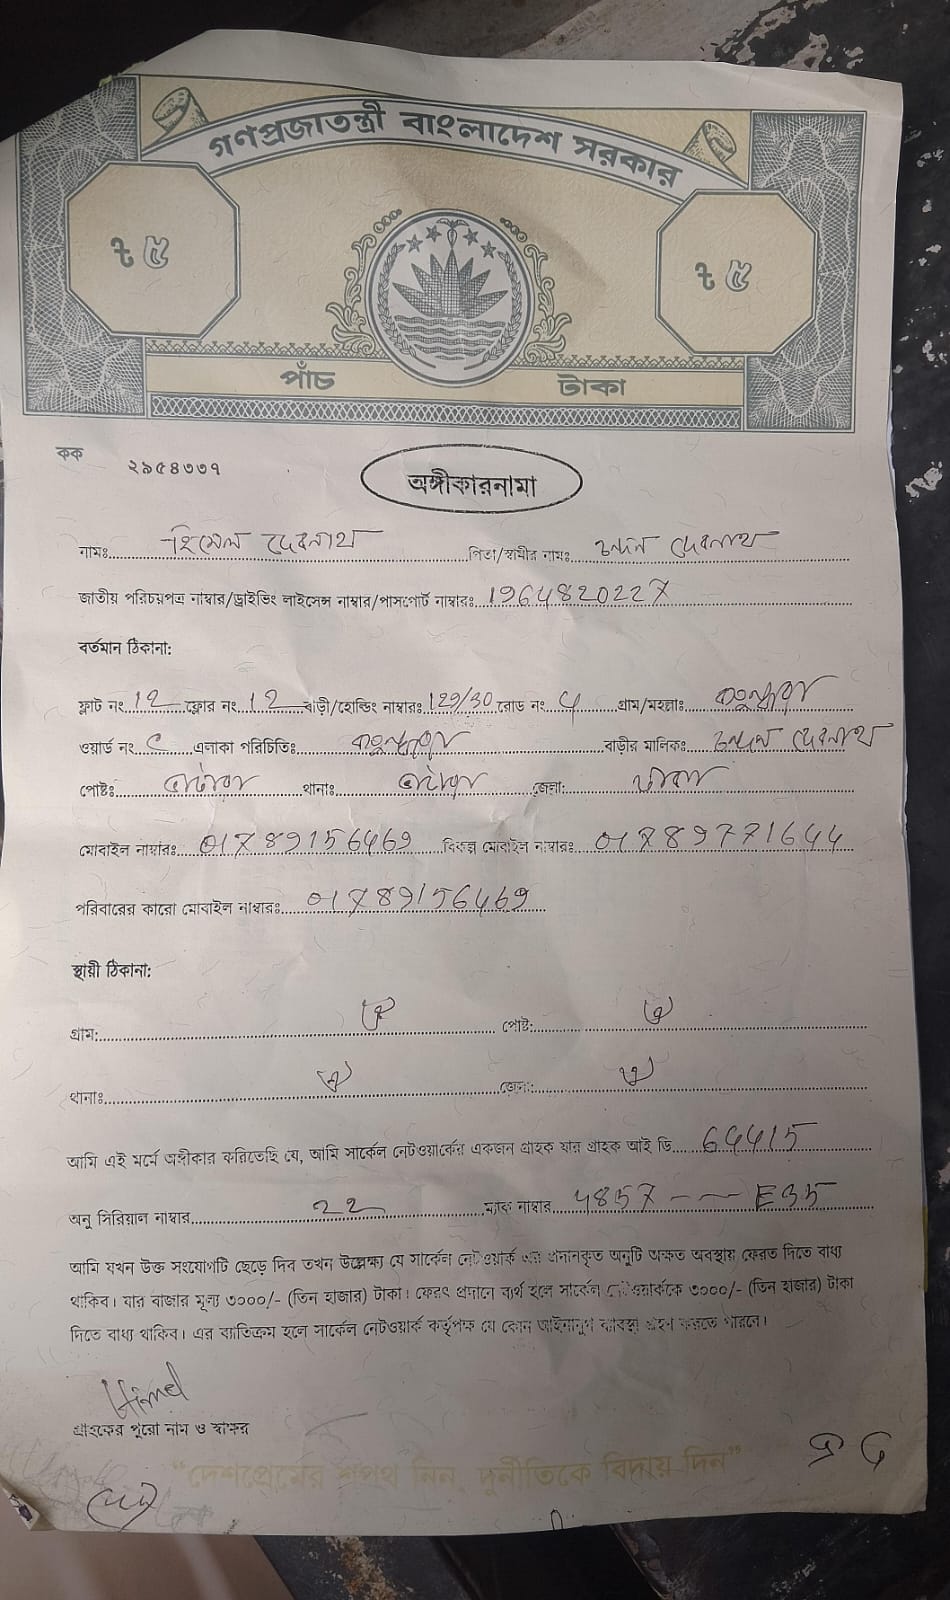 গণপ্রজাতন্ত্রী বাংলাদেশ সরকার
৳ ৫ ৳ ৫
পাঁচ টাকা
কক ২৯৫৪৩৩৭
অঙ্গীকারনামা
নামঃ হিমেল দেবনাথ পিতা/স্বামীর নামঃ চন্দন দেবনাথ
জাতীয় পরিচয়পত্র নাম্বার/ড্রাইভিং লাইসেন্স নাম্বার/পাসপোর্ট নাম্বারঃ 1964820227
বর্তমান ঠিকানা:
ফ্লাট নং 12 ফ্লোর নং 12 বাড়ী/হোল্ডিং নাম্বারঃ 129/30 রোড নং গ্রাম/মহল্লাঃ
ওয়ার্ড নং এলাকা পরিচিতিঃ বাড়ীর মালিকঃ চন্দন দেবনাথ
পোষ্টঃ ভাটারা থানাঃ ভাটারা জেলা: ঢাকা
মোবাইল নাম্বারঃ 01789156469 বিকল্প মোবাইল নাম্বারঃ 01789771644
পরিবারের কারো মোবাইল নাম্বারঃ 01789156469
স্থায়ী ঠিকানা:
গ্রাম: ঐ পোষ্ট: ঐ
থানাঃ ঐ জেলা: ঐ
আমি এই মর্মে অঙ্গীকার করিতেছি যে, আমি সার্কেল নেটওয়ার্কের একজন গ্রাহক যার গ্রাহক আই ডি 64415
অনু সিরিয়াল নাম্বার 22 ম্যাক নাম্বার 4857 -- E35
আমি যখন উক্ত সংযোগটি ছেড়ে দিব তখন উল্লেক্ষ্য যে সার্কেল নেটওয়ার্ক এর প্রদানকৃত অনুটি অক্ষত অবস্থায় ফেরত দিতে বাধ্য
থাকিব। যার বাজার মূল্য ৩০০০/- (তিন হাজার) টাকা। ফেরৎ প্রদানে ব্যর্থ হলে সার্কেল নেটওয়ার্ককে ৩০০০/- (তিন হাজার) টাকা
দিতে বাধ্য থাকিব। এর ব্যতিক্রম হলে সার্কেল নেটওয়ার্ক কর্তৃপক্ষ যে কোন আইনানুগ ব্যবস্থা গ্রহণ করতে পারবে।
Himel
গ্রাহকের পুরো নাম ও স্বাক্ষর
“দেশপ্রেমের শপথ নিন, দুর্নীতিকে বিদায় দিন”